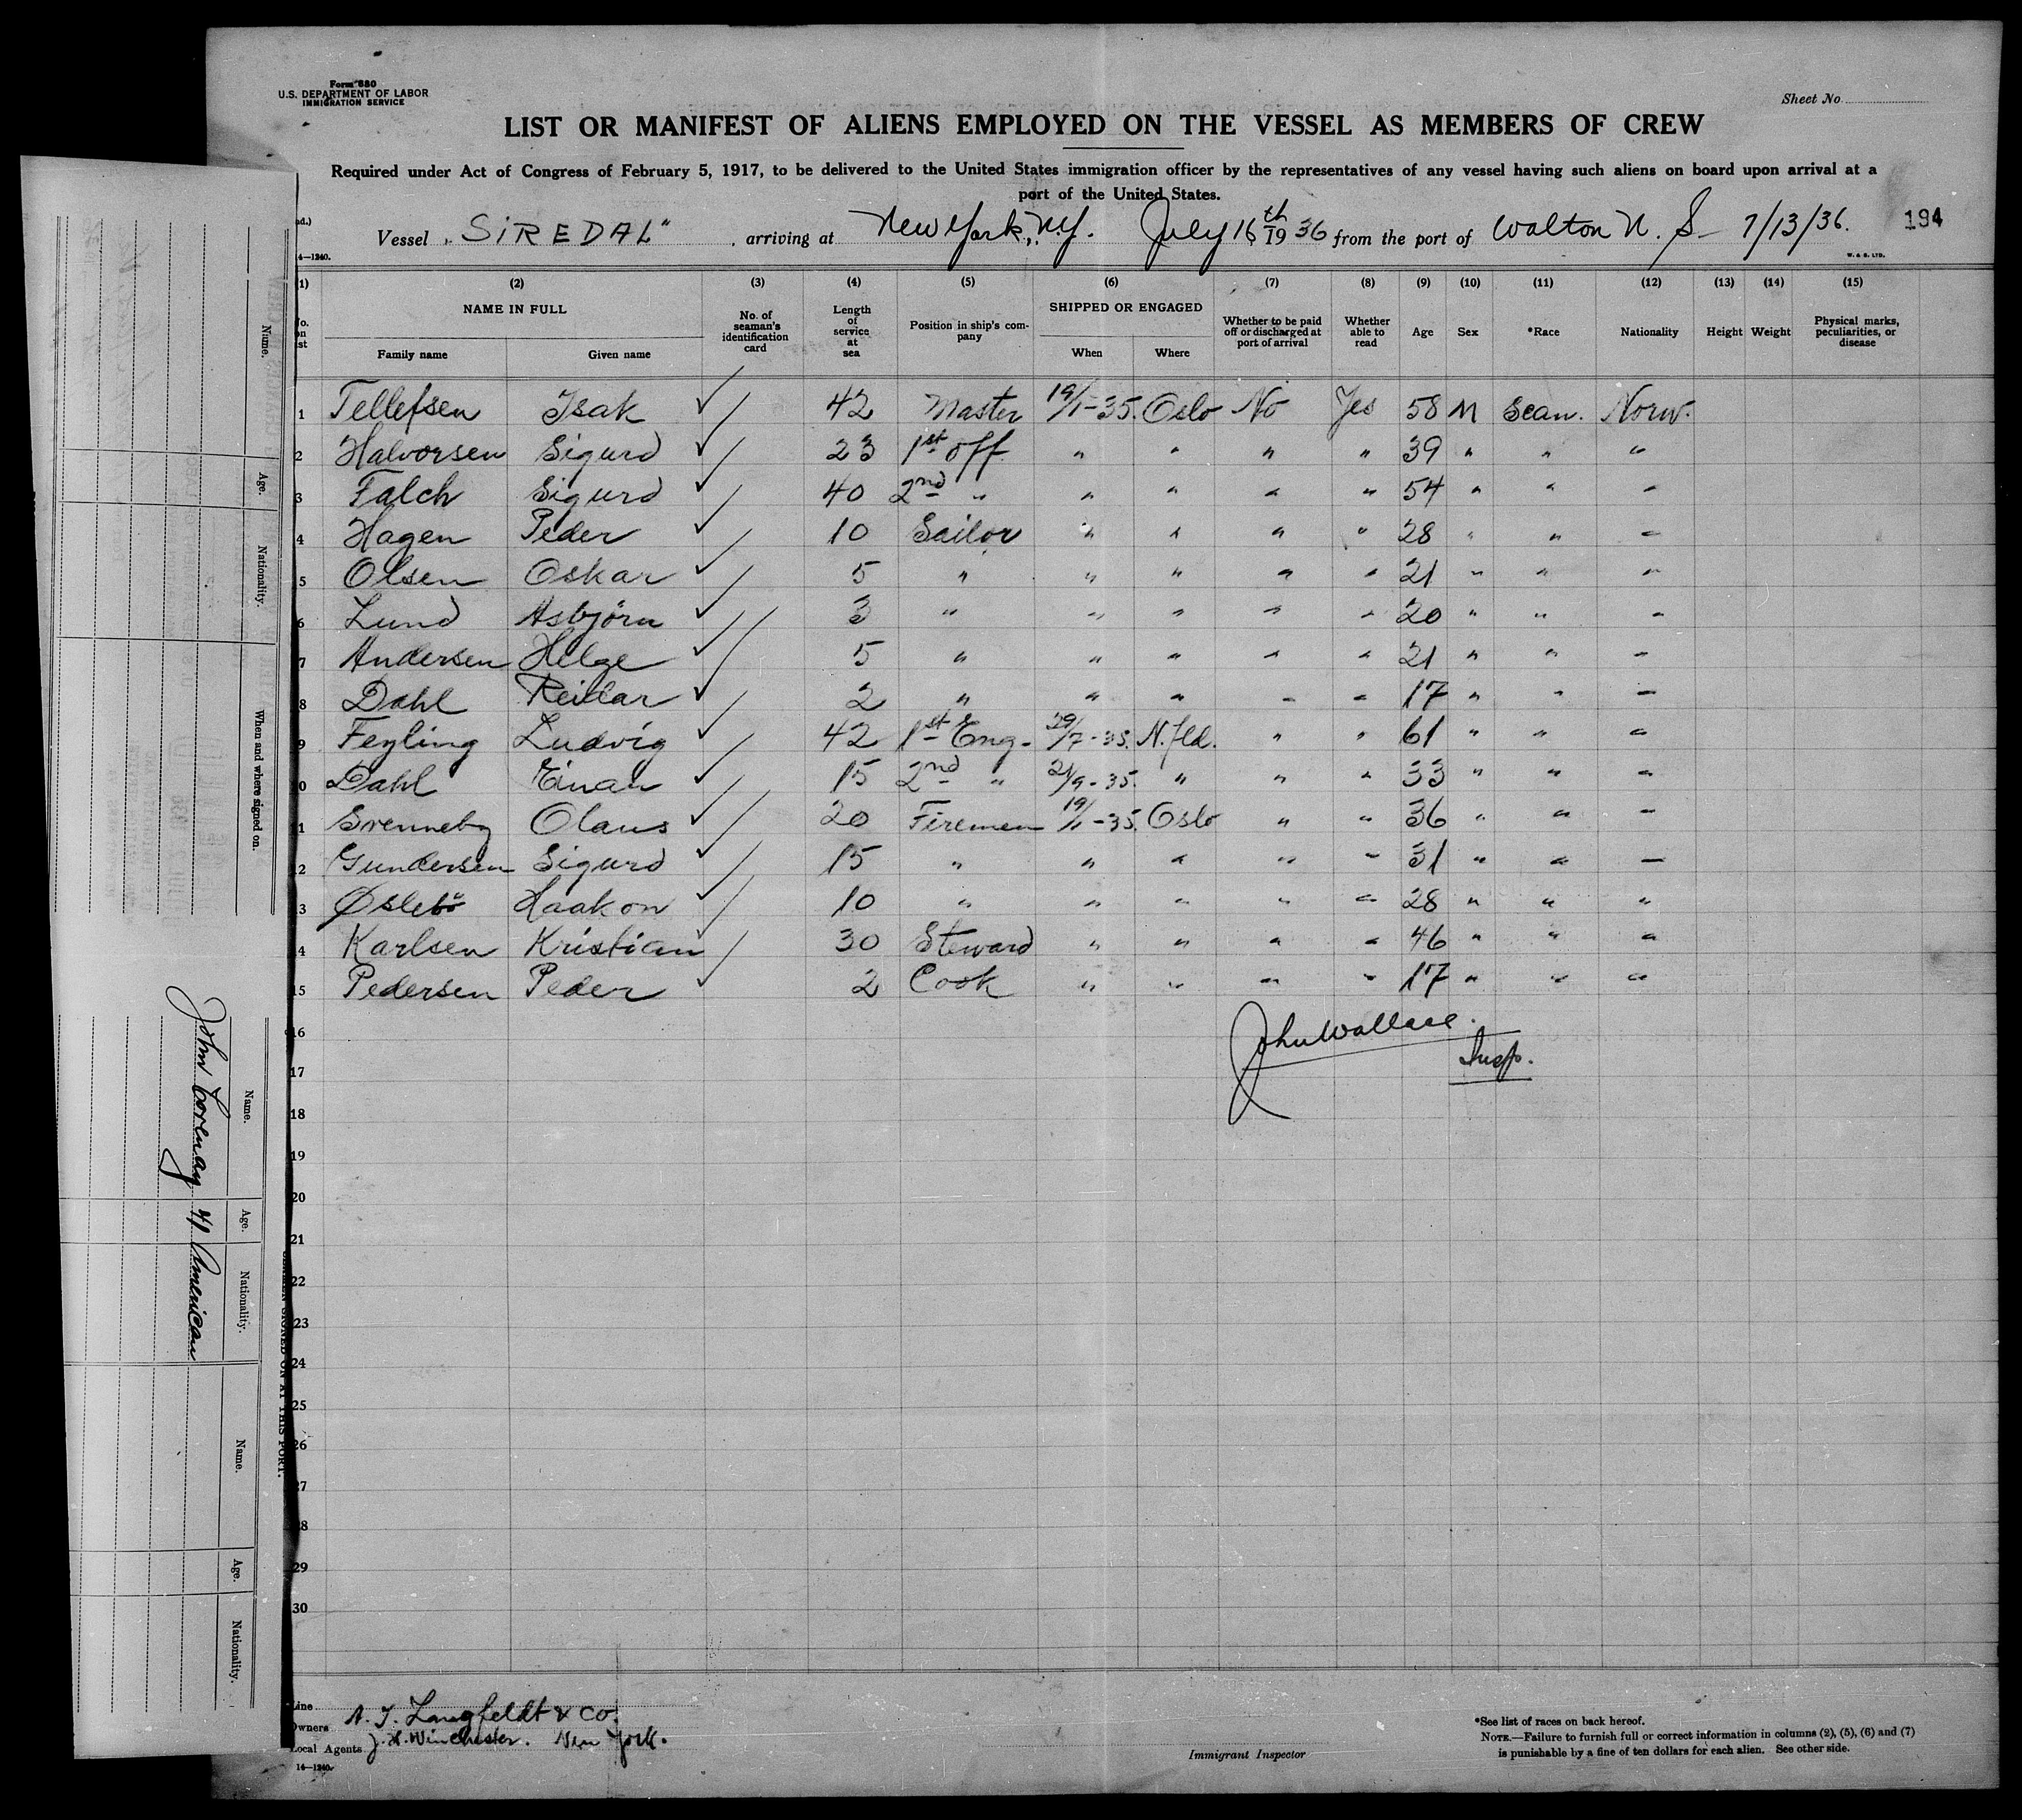 Form 680
U.S. DEPARTMENT OF LABOR
IMMIGRATION SERVICE
Sheet No.
LIST OR MANIFEST OF ALIENS EMPLOYED ON THE VESSEL AS MEMBERS OF CREW
Required under Act of Congress of February 5, 1917, to be delivered to the United States immigration officer by the representatives of any vessel having such aliens on board upon arrival at a
port of the United States.
Vessel „SIREDAL" , arriving at New York, N.Y. July 16th 1936 from the port of Walton N.S– 7/13/36. 194
14—1240.
W. & S. LTD.
(1) (2) (3) (4) (5) (6) (7) (8) (9) (10) (11) (12) (13) (14) (15)
No. on list NAME IN FULL No. of seaman's identification card Length of service at sea Position in ship's company SHIPPED OR ENGAGED Whether to be paid off or discharged at port of arrival Whether able to read Age Sex *Race Nationality Height Weight Physical marks, peculiarities, or disease
Family name Given name When Where
1 Tellefsen Isak ✓ 42 Master 19/1-35. Oslo No Yes 58 M Scan. Norw.
2 Halvorsen Sigurd ✓ 23 1st off. " " " " 39 " " "
3 Falch Sigurd ✓ 40 2nd " " " " " 54 " " "
4 Hagen Peder ✓ 10 Sailor " " " " 28 " " "
5 Olsen Oskar ✓ 5 " " " " " 21 " " "
6 Lund Asbjörn ✓ 3 " " " " " 20 " " "
7 Andersen Helge ✓ 5 " " " " " 21 " " "
8 Dahl Reidar ✓ 2 " " " " " 17 " " "
9 Feyling Ludvig ✓ 42 1st Eng. 29/7-35. N.fld. " " 61 " " "
10 Dahl Einar ✓ 15 2nd " 21/9-35. " " " 33 " " "
11 Svenneby Olaus ✓ 20 Firemen 19/1-35. Oslo " " 36 " " "
12 Gundersen Sigurd ✓ 15 " " " " " 31 " " "
13 Øslebö Haakon ✓ 10 " " " " " 28 " " "
14 Karlsen Kristian ✓ 30 Steward " " " " 46 " " "
15 Pedersen Peder ✓ 2 Cook " " " " 17 " " "
16
John Wallace.
Insp.
17
18
19
20
21
22
23
24
25
26
27
28
29
30
Line
Owners A. I. Langfeldt & Co.
Local Agents J. H. Winchester. New York.
14—1240
Immigrant Inspector
*See list of races on back hereof.
NOTE.—Failure to furnish full or correct information in columns (2), (5), (6) and (7)
is punishable by a fine of ten dollars for each alien. See other side.
Name. Age. Nationality. When and where signed on.
Name. Age. Nationality. Name. Age. Nationality.
John 41 American
SIGNED ON AT THIS PORT.